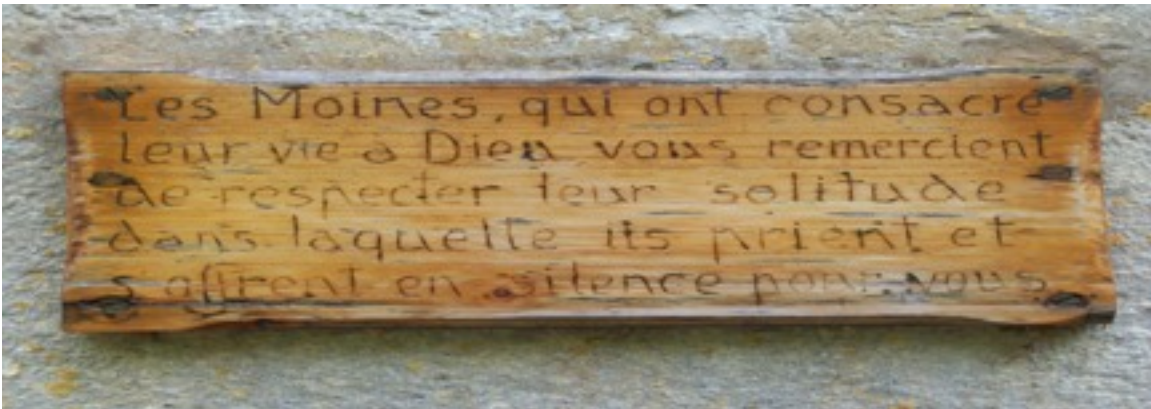 Les Moines, qui ont consacré
leur vie à Dieu vous remercient
de respecter leur solitude
dans laquelle ils prient et
s'offrent en silence pour vous